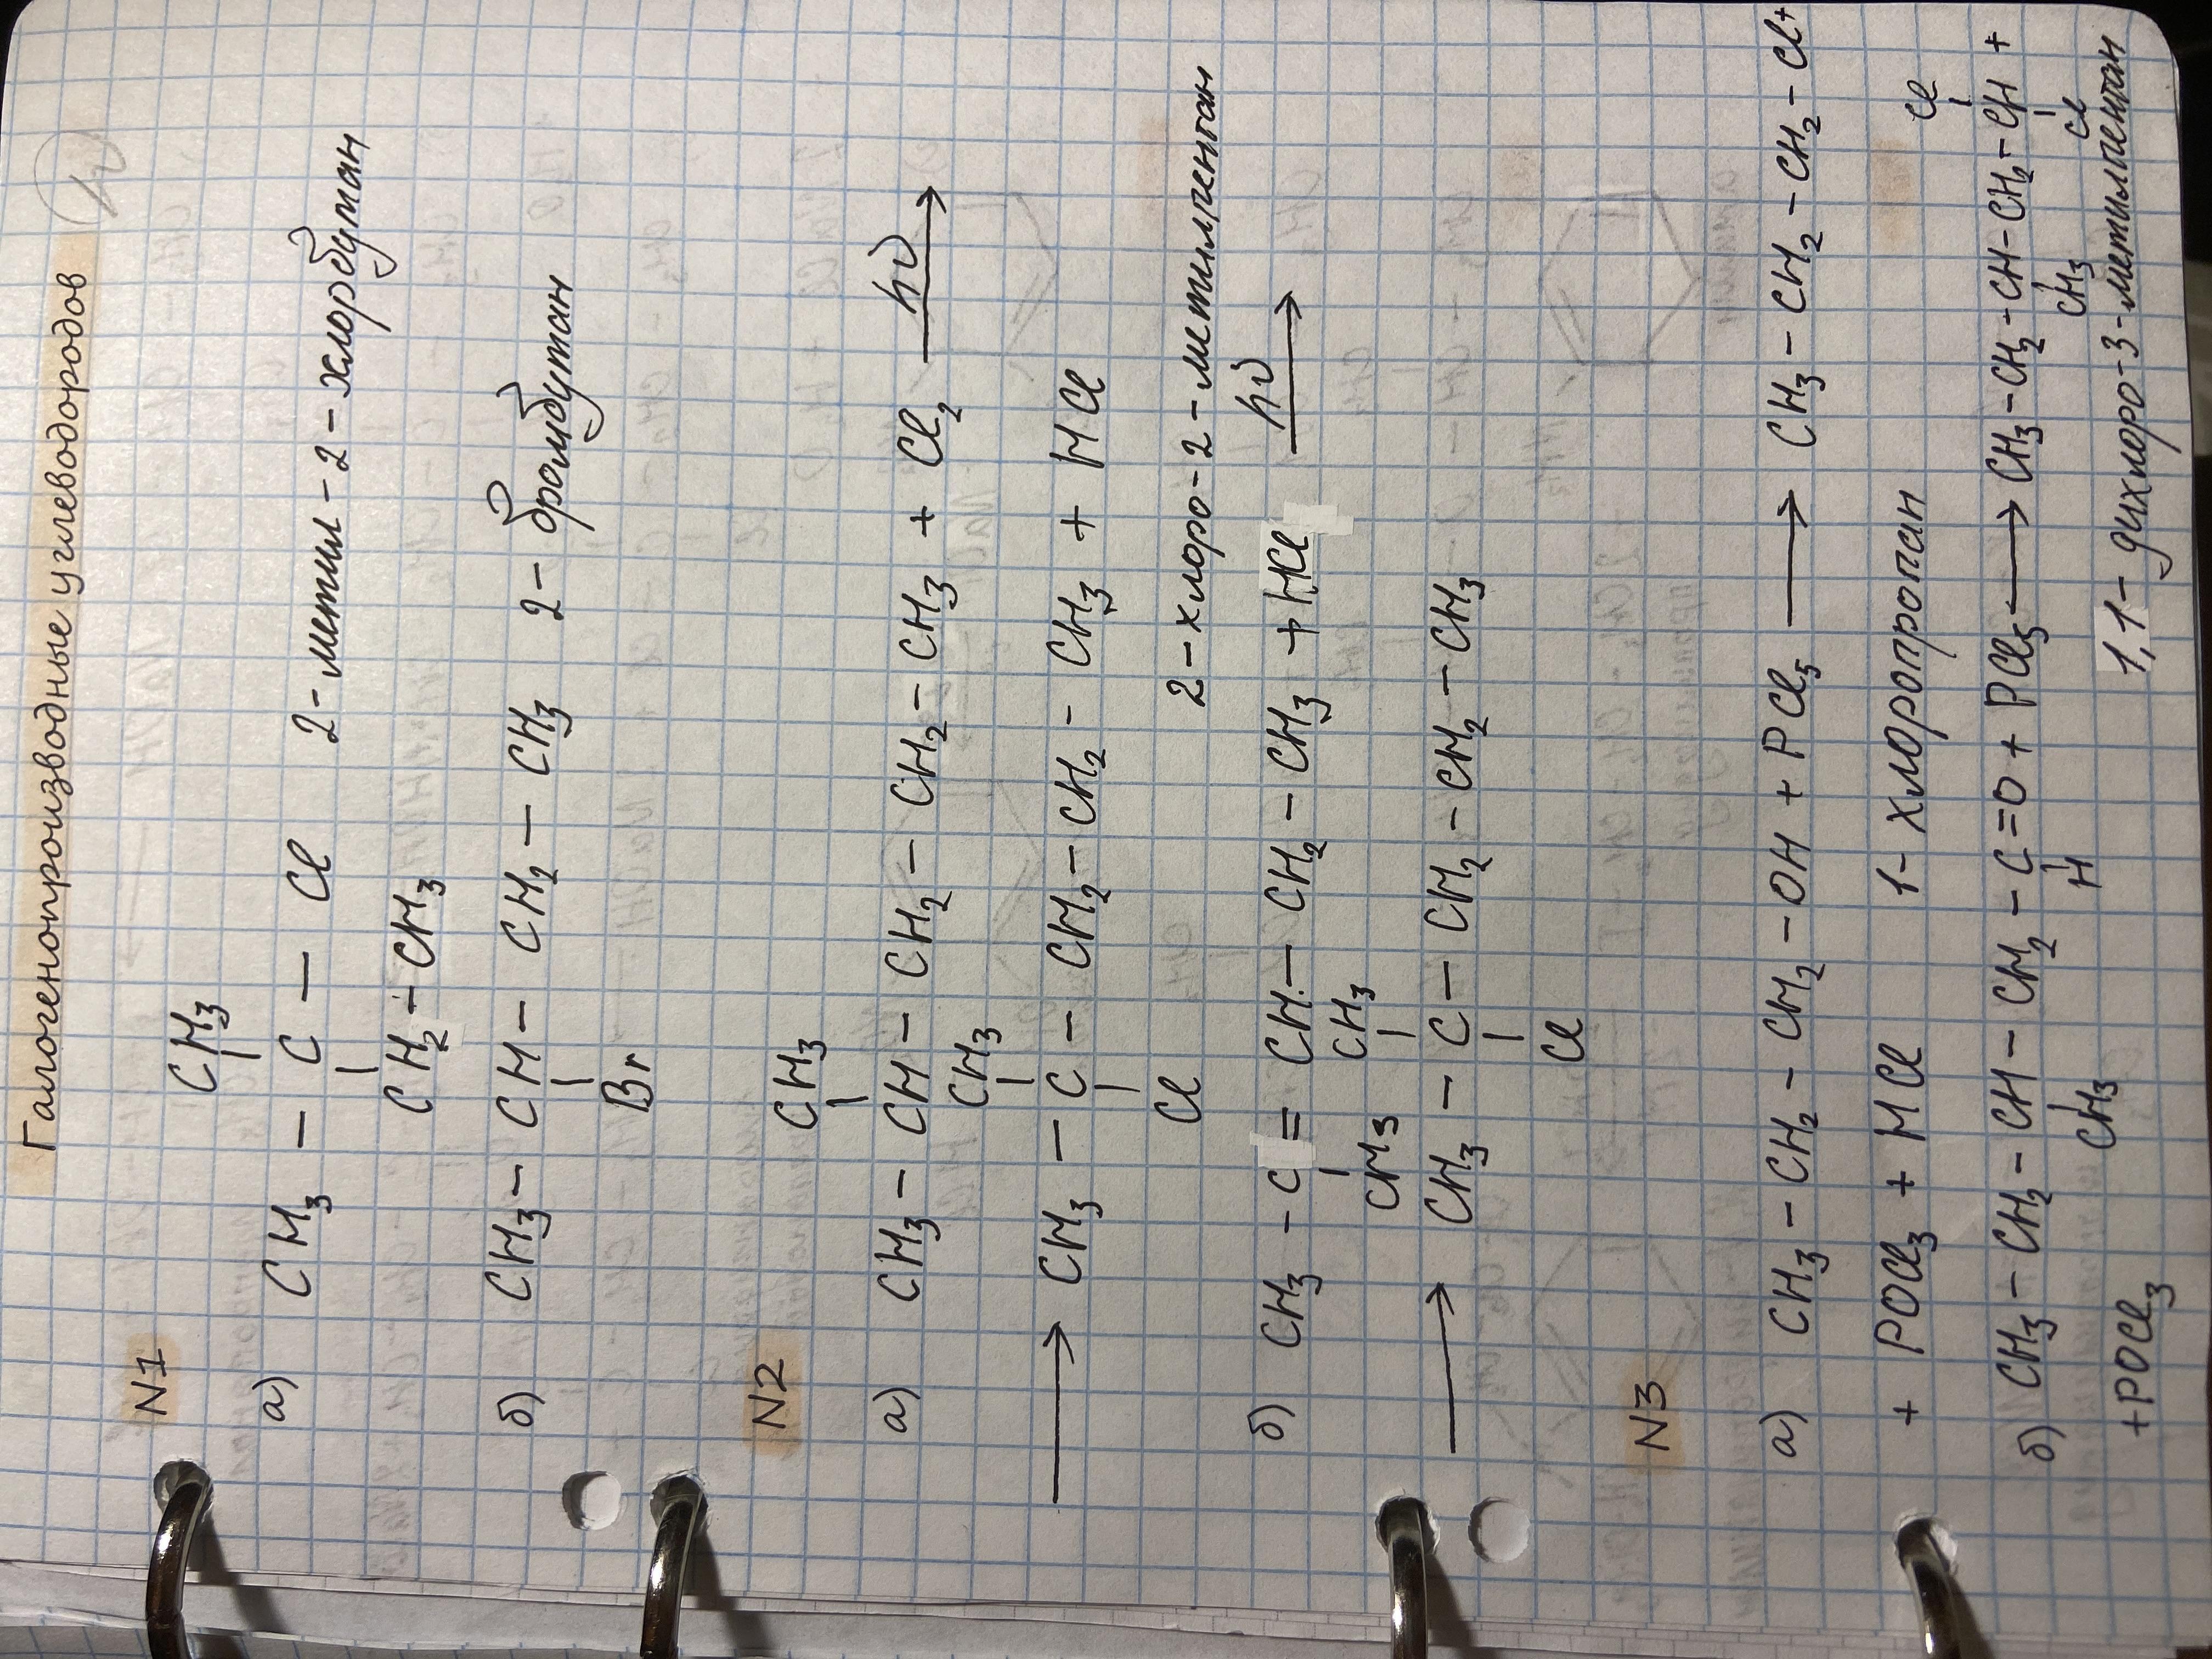 Галогенопроизводные углеводородов
N1
CH₃
а) CH₃ – C – Cl 2-метил-2-хлорбутан
CH₂–CH₃
б) CH₃ – CH – CH₂ – CH₃ 2-бромбутан
Br
N2
CH₃
а) CH₃ – CH – CH₂ – CH₂ – CH₃ + Cl₂ hν→
CH₃
→ CH₃ – C – CH₂ – CH₂ – CH₃ + HCl
Cl
2-хлоро-2-метилпентан
б) CH₃ – C = CH – CH₂ – CH₃ + HCl hν→
CH₃ CH₃
→ CH₃ – C – CH₂ – CH₂ – CH₃
Cl
N3
а) CH₃ – CH₂ – CH₂ – OH + PCl₅ → CH₃ – CH₂ – CH₂ – Cl +
+ POCl₃ + HCl 1-хлоропропан
Cl
б) CH₃ – CH₂ – CH – CH₂ – C=O + PCl₅ → CH₃–CH₂–CH–CH₂–CH +
CH₃ H CH₃ Cl
+POCl₃ 1,1-дихлоро-3-метилпентан